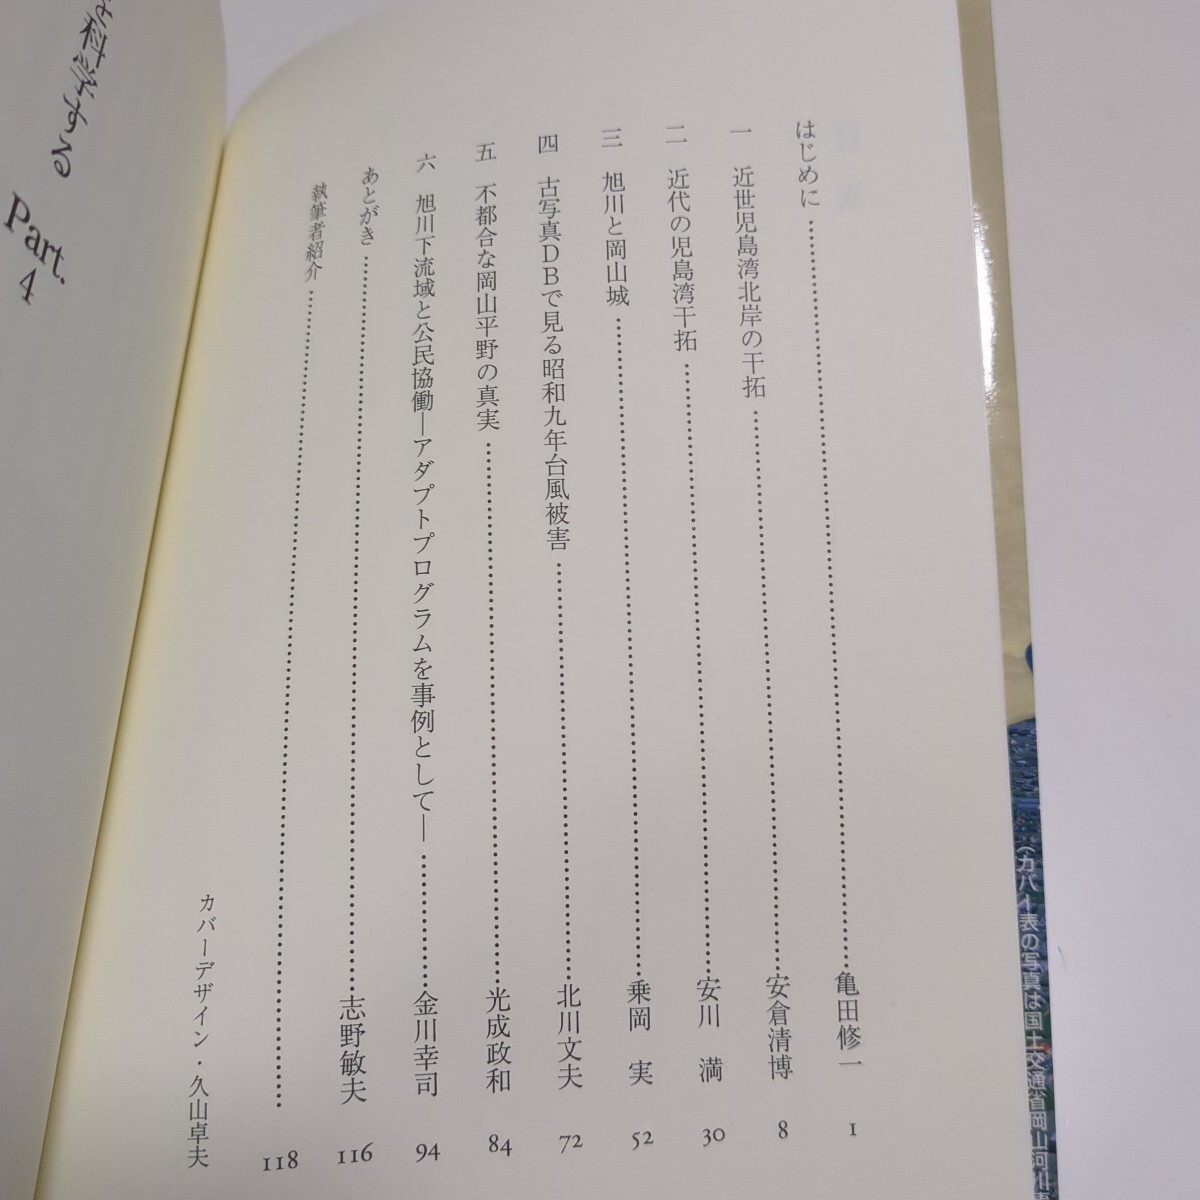 (カバー表の写真は国土交通省岡山河川事
はじめに……亀田修一 1
一 近世児島湾北岸の干拓……安倉清博 8
二 近代の児島湾干拓……安川 満 30
三 旭川と岡山城……乗岡 実 52
四 古写真DBで見る昭和九年台風被害……北川文夫 72
五 不都合な岡山平野の真実……光成政和 84
六 旭川下流域と公民協働―アダプトプログラムを事例として―……金川幸司 94
あとがき……志野敏夫 116
執筆者紹介……118
カバーデザイン・久山卓夫
を科学する Part. 4